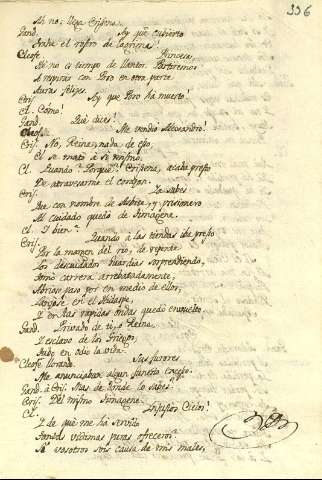 336
Ah no; llega Crisena.
Gand. Ay que cubierto
Trahe el rostro de lagrimas!
Cleofe Princesa,
Ahi no es tiempo de llantos. Partiremos
A respirar con Poro en otra parte
Auras felizes.
Cris. Ay que Poro ha muerto!
Cl. Cómo!
Gand. Què dices!
Cleofe. Me vendiò Alexandro!
Cris. No, Reina, nada de eso,
El se matò à si mismo.
Cl. Quando? Porquè? Crisena, acaba presto
De atravesarme el corazon.
Cris. Ya sabes
Que con nombre de Asbite, y prisionero
Al cuidado quedò de Timagenes.
Cl. Y bien?
Cris. Quando à las tiendas de
Por la margen del rio, de repente
Los descuidados guardias sorprendiendo,
Tomó carrera arrebatadamente,
Abriose paso por en medio de ellos,
Arrojose en el Hidaspe,
Y de las rapidas ondas quedò envuelto.
Gand. Privado de ti, o Reina,
Y esclavo de los Griegos,
Tubo en odio la vida.
Cleofe llorando. Sus furores
Me anunciaban algun funesto exceso.
Gand. à Cris. Mas de donde lo sabes?
Cris. Del mismo Timagenes.
Cl. Injustos Cielos!
Y de què me ha servido
Tantas victimas puras ofreceros?
Si vosotros sois causa de mis males,